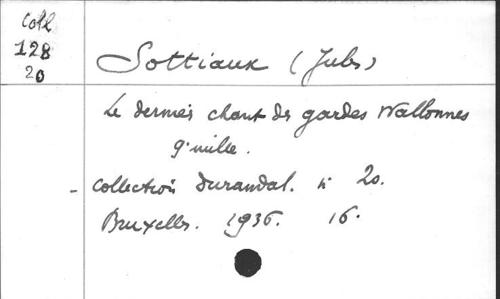 Coll
128
20
Sottiaux (Jules)
Le dernier chant des gardes Wallonnes
9e mille.
- Collection Durandal. n° 20.
Bruxelles. 1936. 16.